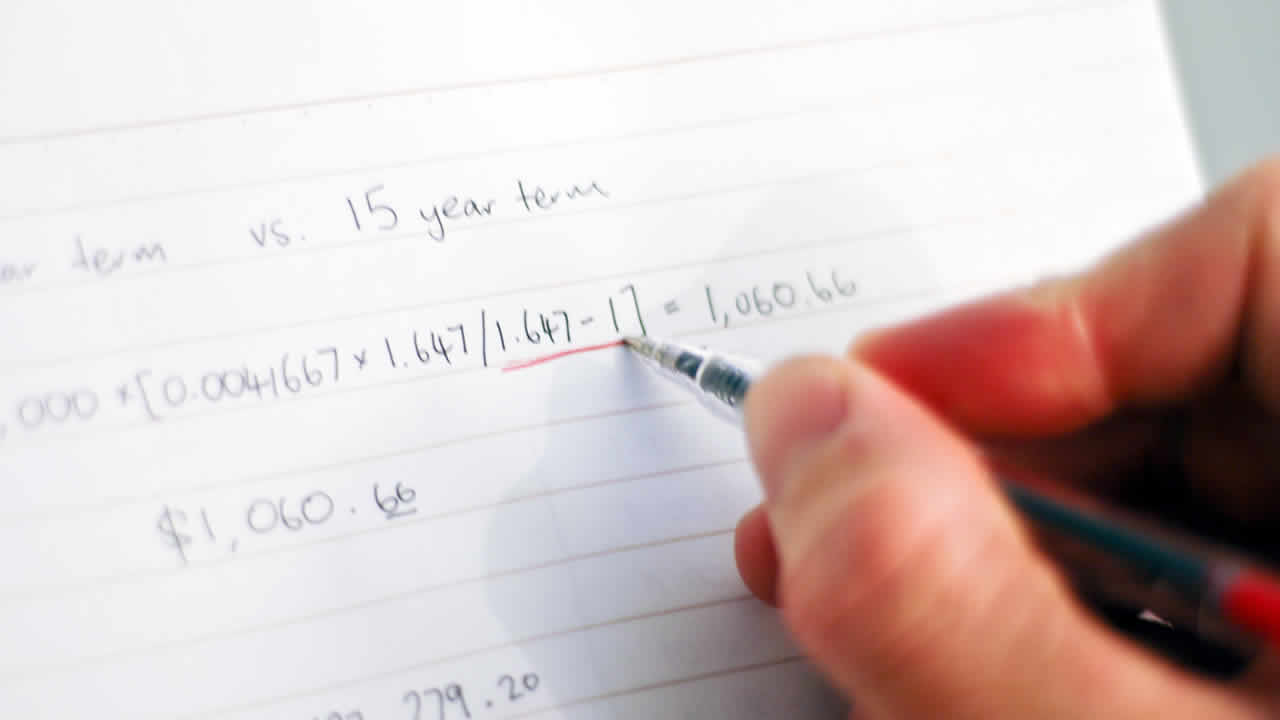 ar term vs. 15 year term
,000 × [0.0041667 × 1.647/1.647 - 1] = 1,060.66
$1,060.66
279.20